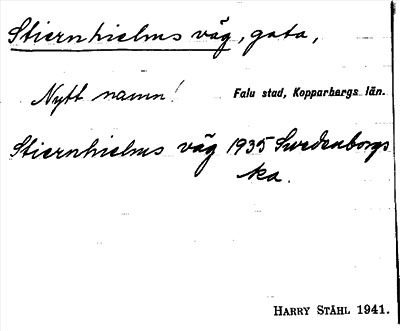 Stiernhielms väg, gata,
Nytt namn! Falu stad, Kopparbergs län.
Stiernhielms väg 1935 Swedenborgs
ka.
HARRY STÅHL 1941.